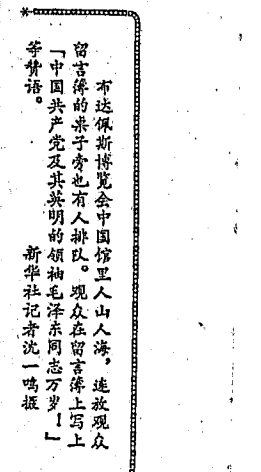 布达佩斯博览会中国馆里人山人海，连放观众
留言簿的桌子旁也有人排队。观众在留言簿上写上
「中国共产党及其英明的领袖毛泽东同志万岁！」
等赞语。
新华社记者沈一鸣摄